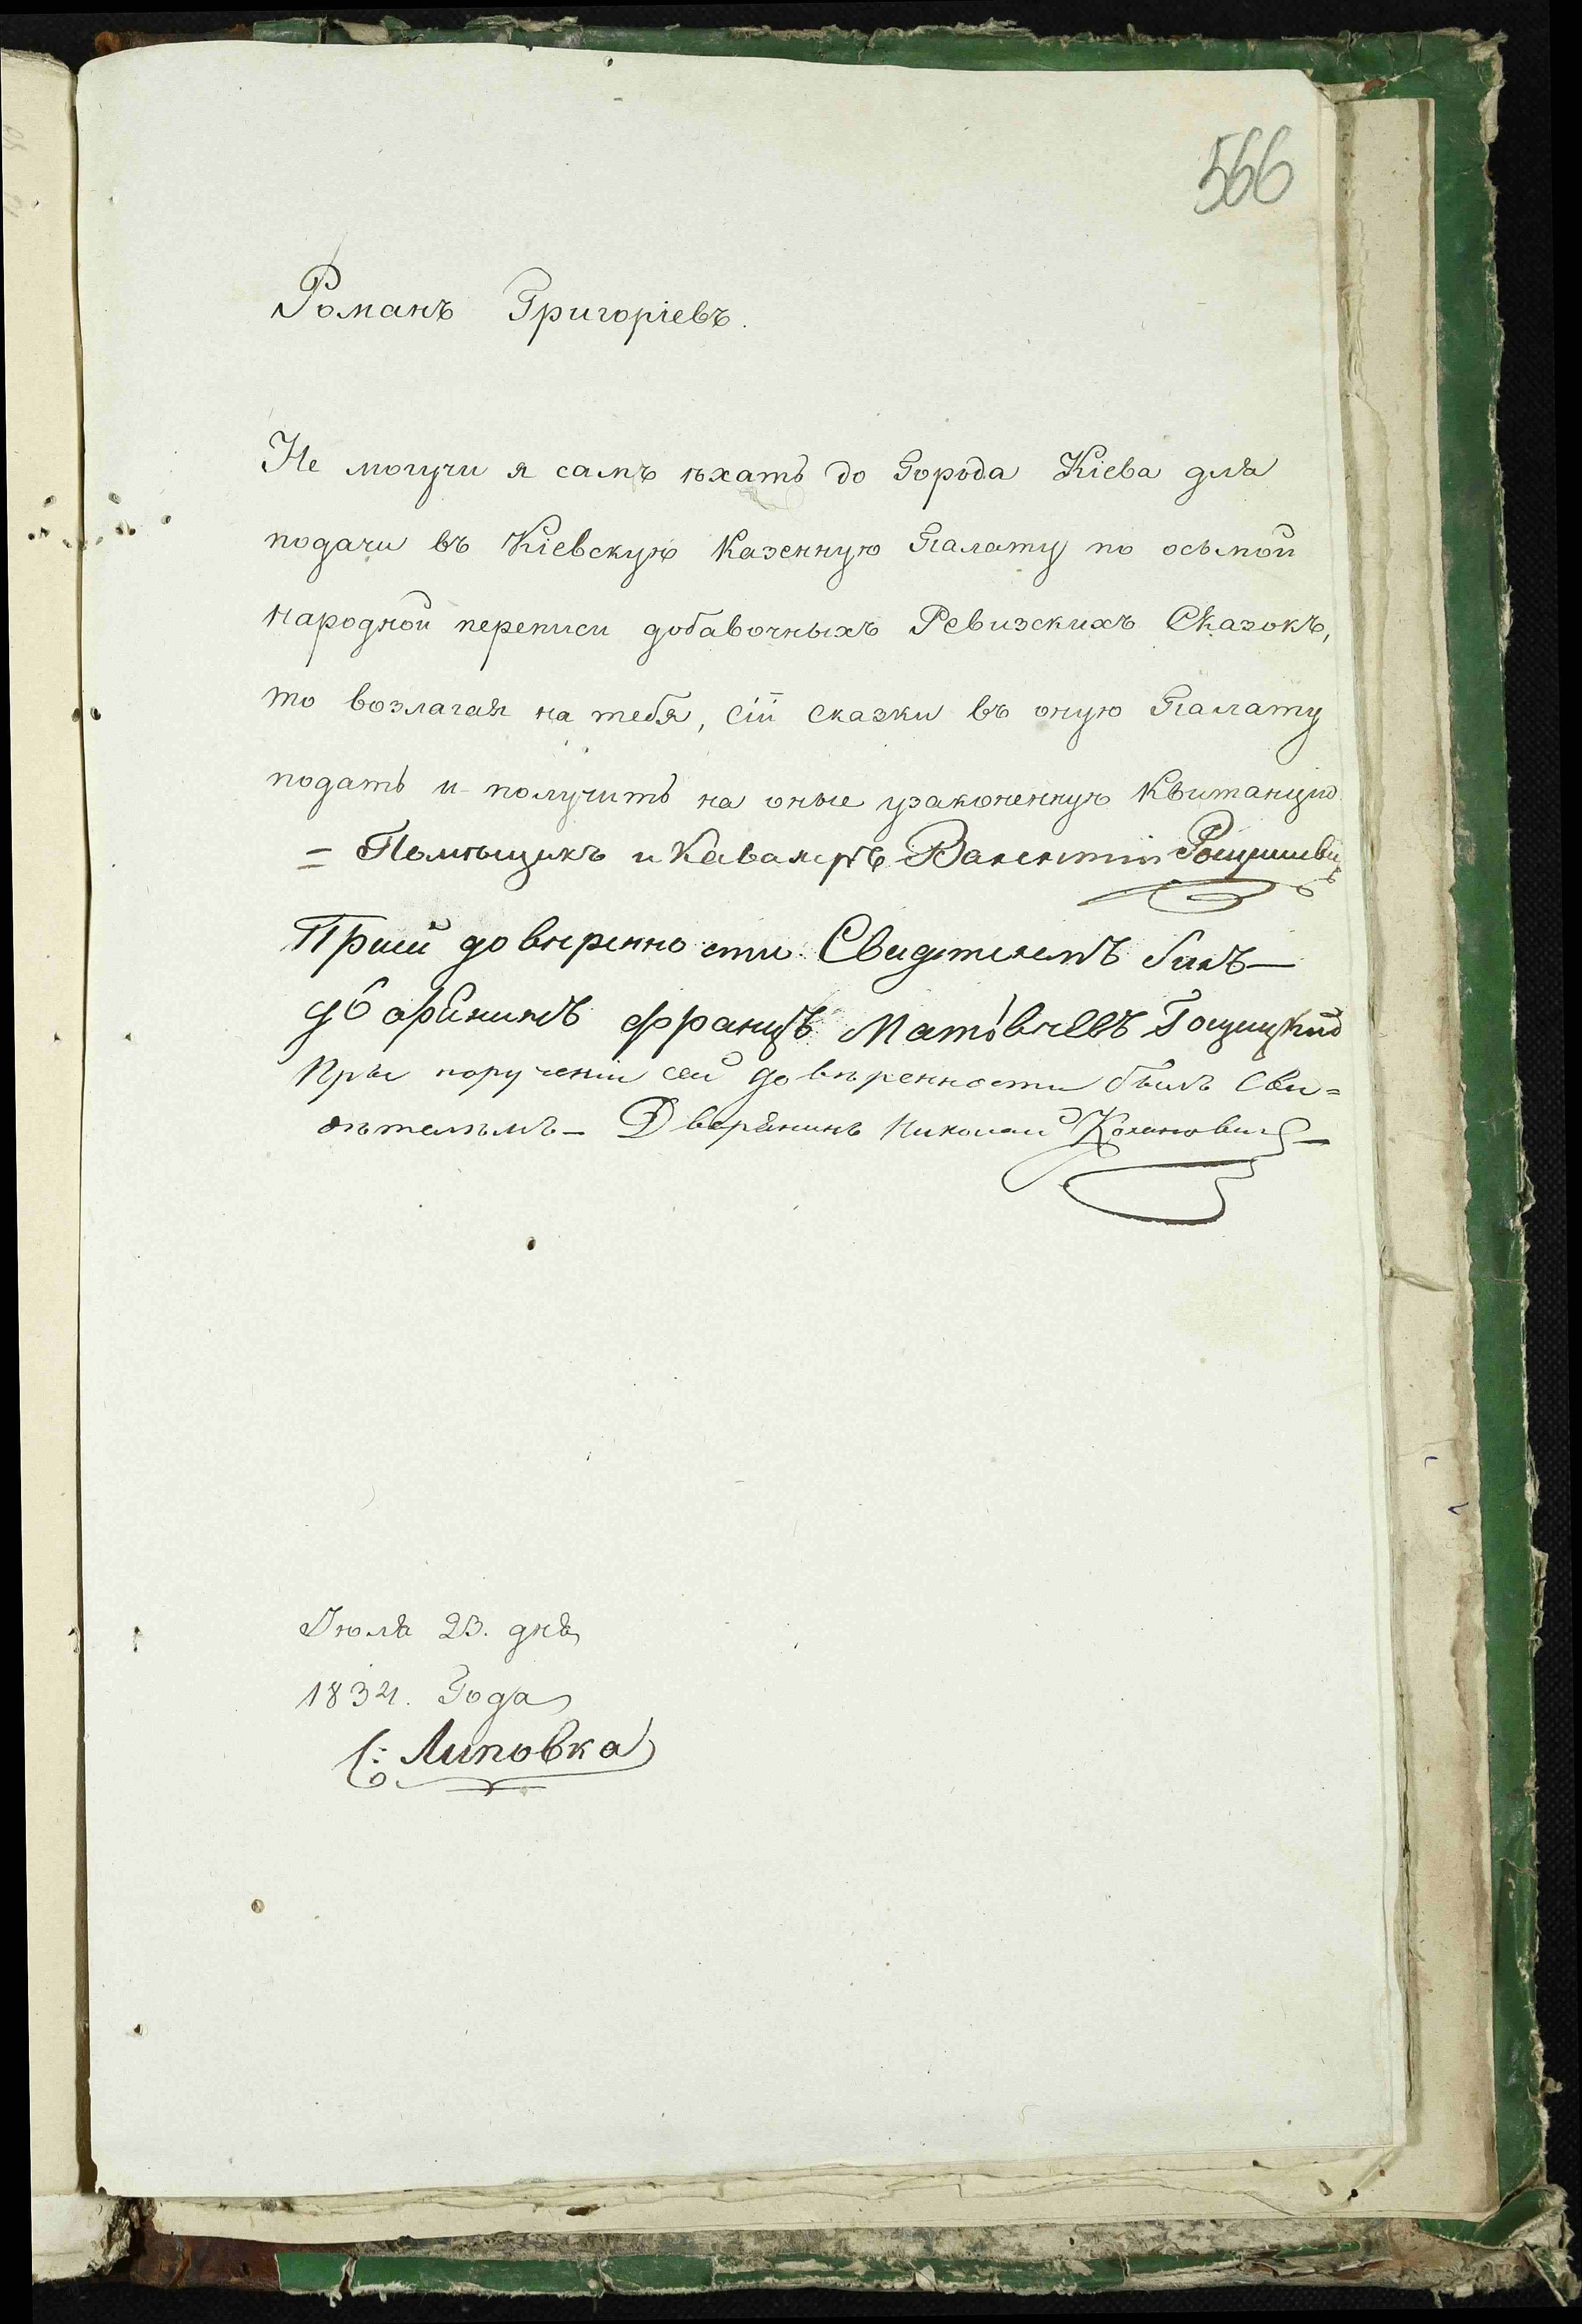 566
Романъ Григоріевъ.
Не могучи я самъ ѣхать до Города Кіева для
подачи въ Кіевскую Казенную Палату по осьмой
народной переписи добавочныхъ Ревизскихъ Сказокъ,
то возлагая на тебя, сіи сказки въ оную Палату
подать и получить на оные узаконенную Квитанцію
= Помѣщикъ и Кавалеръ Валентій
При сей доверенности Свидетелемъ билъ —
дворянинъ Францъ Матвѣевъ
При порученіи сей довѣренности былъ Сви=
дѣтелѣмъ — Дворянинъ Николай
Іюля 23. дня
1834. Года
С: Липовка